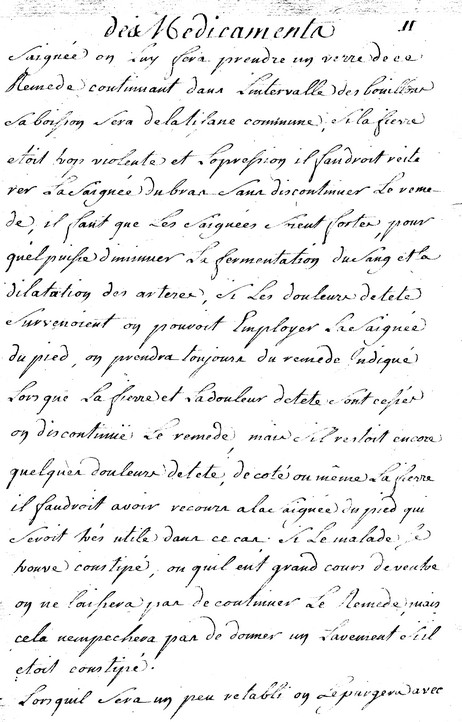 des Medicaments 11
saignée on Luy fera prendre un verre de ce
Remede continuant dans L'intervalle des bouillons
sa boisson sera de la tisane commune, si la fievre
etoit trop violente et L'opression il faudroit reite
rer La Saignée du bras sans discontinuer Le reme
de, il faut que Les saignées soient fortes, pour
quel puisse diminuer La fermentation du Sang et la
dilatation des arteres, si Les douleurs de tete
survenoient on pouroit Employer La Saignée
du pied, on prendra toujours du remede Indiqué
Lors que La fievre et La douleur de tete sont cessées
on discontinüe Le remede, mais s'il restoit encore
quelques douleurs de tete, de coté ou même La fievre
il faudroit avoir recours a la saignée du pied qui
seroit trés utile dans ce cas. Si Le malade se
trouve constipé, ou quil eut grand cours de ventre
on ne laissera pas de continuer Le Remede, mais
cela nempechera pas de donner un Lavement s'il
etoit constipé.
Lorsquil sera un peu retabli on Le purgera avec